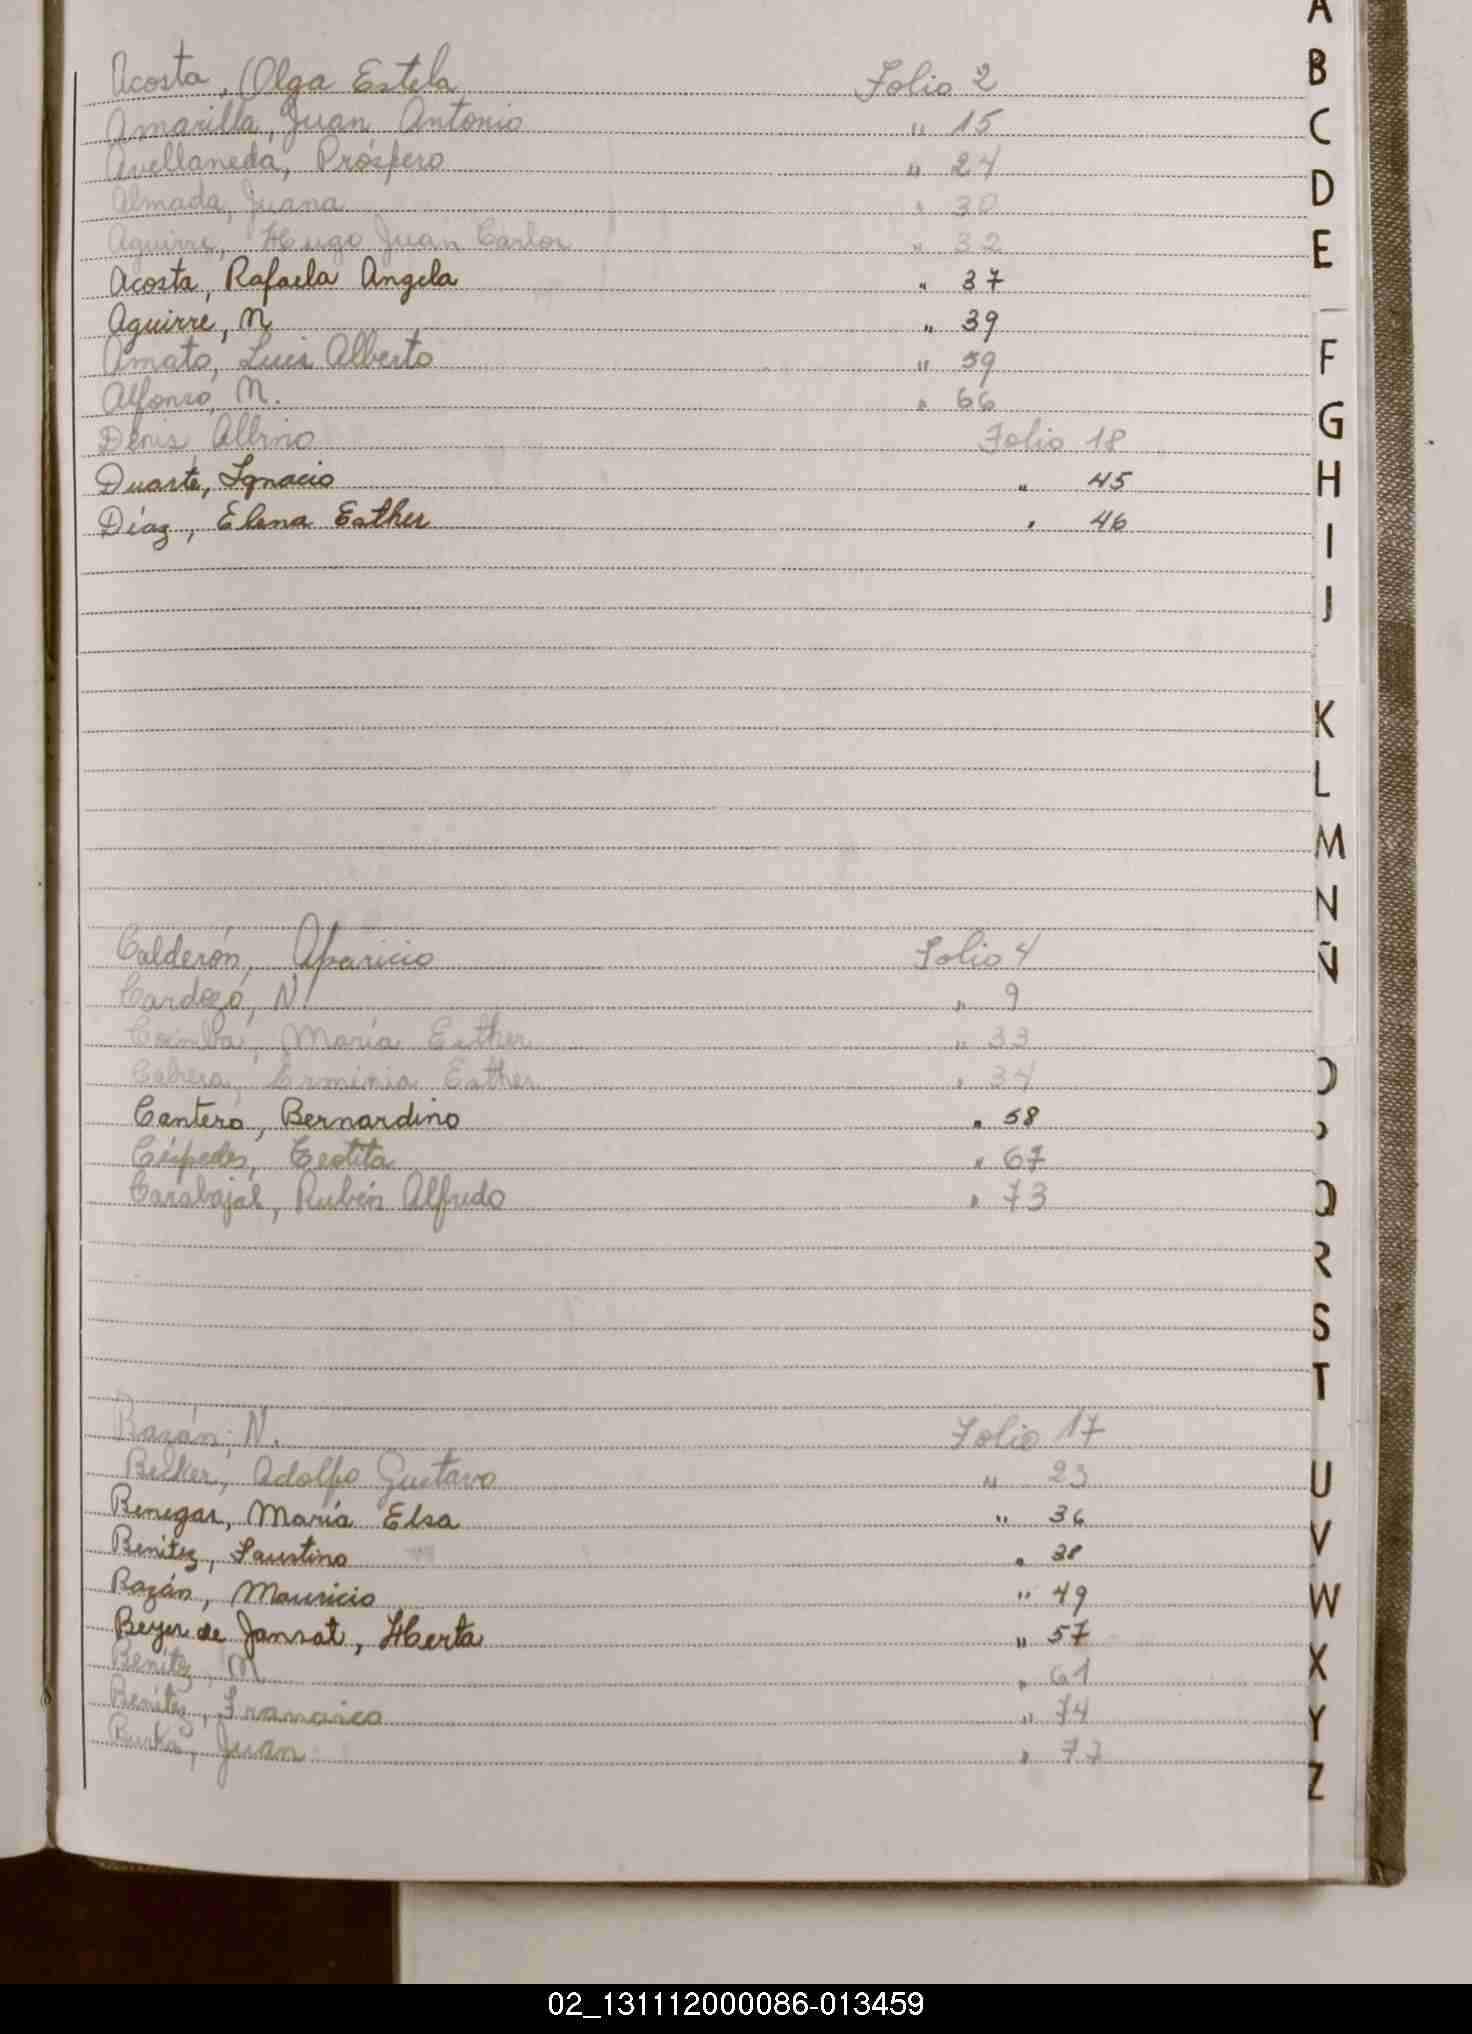 Acosta, Olga Estela Folio 2
Amarilla, Juan Antonio " 15
Avellaneda, Próspero " 24
Almada, Juana " 30
Aguirre, Hugo Juan Carlos " 32
Acosta, Rafaela Angela " 37
Aguirre, N " 39
Amato, Luis Alberto " 59
Alfonso, N. " 66
Denis, Albino Folio 18
Duarte, Ignacio " 45
Díaz, Elena Esther " 46
Calderón, Aparicio Folio 4
Cardozo, N. " 9
Coimba, María Esther " 33
Cabrera, Erminia Esther " 34
Cantero, Bernardino " 58
Céspedes, " 67
Carabajal, Rubén Alfredo " 73
Bazán, N. Folio 17
Becker, Adolfo Gustavo " 23
Benegas, María Elsa " 36
Benítez, Faustino " 38
Bazán, Mauricio " 49
Beyer de Jansat, Herta " 57
Benítez, M " 61
Benítez, Francisco " 74
Juan " 77
A
B
C
D
E
F
G
H
I
J
K
L
M
N
Ñ
O
P
Q
R
S
T
U
V
W
X
Y
Z
02_131112000086-013459